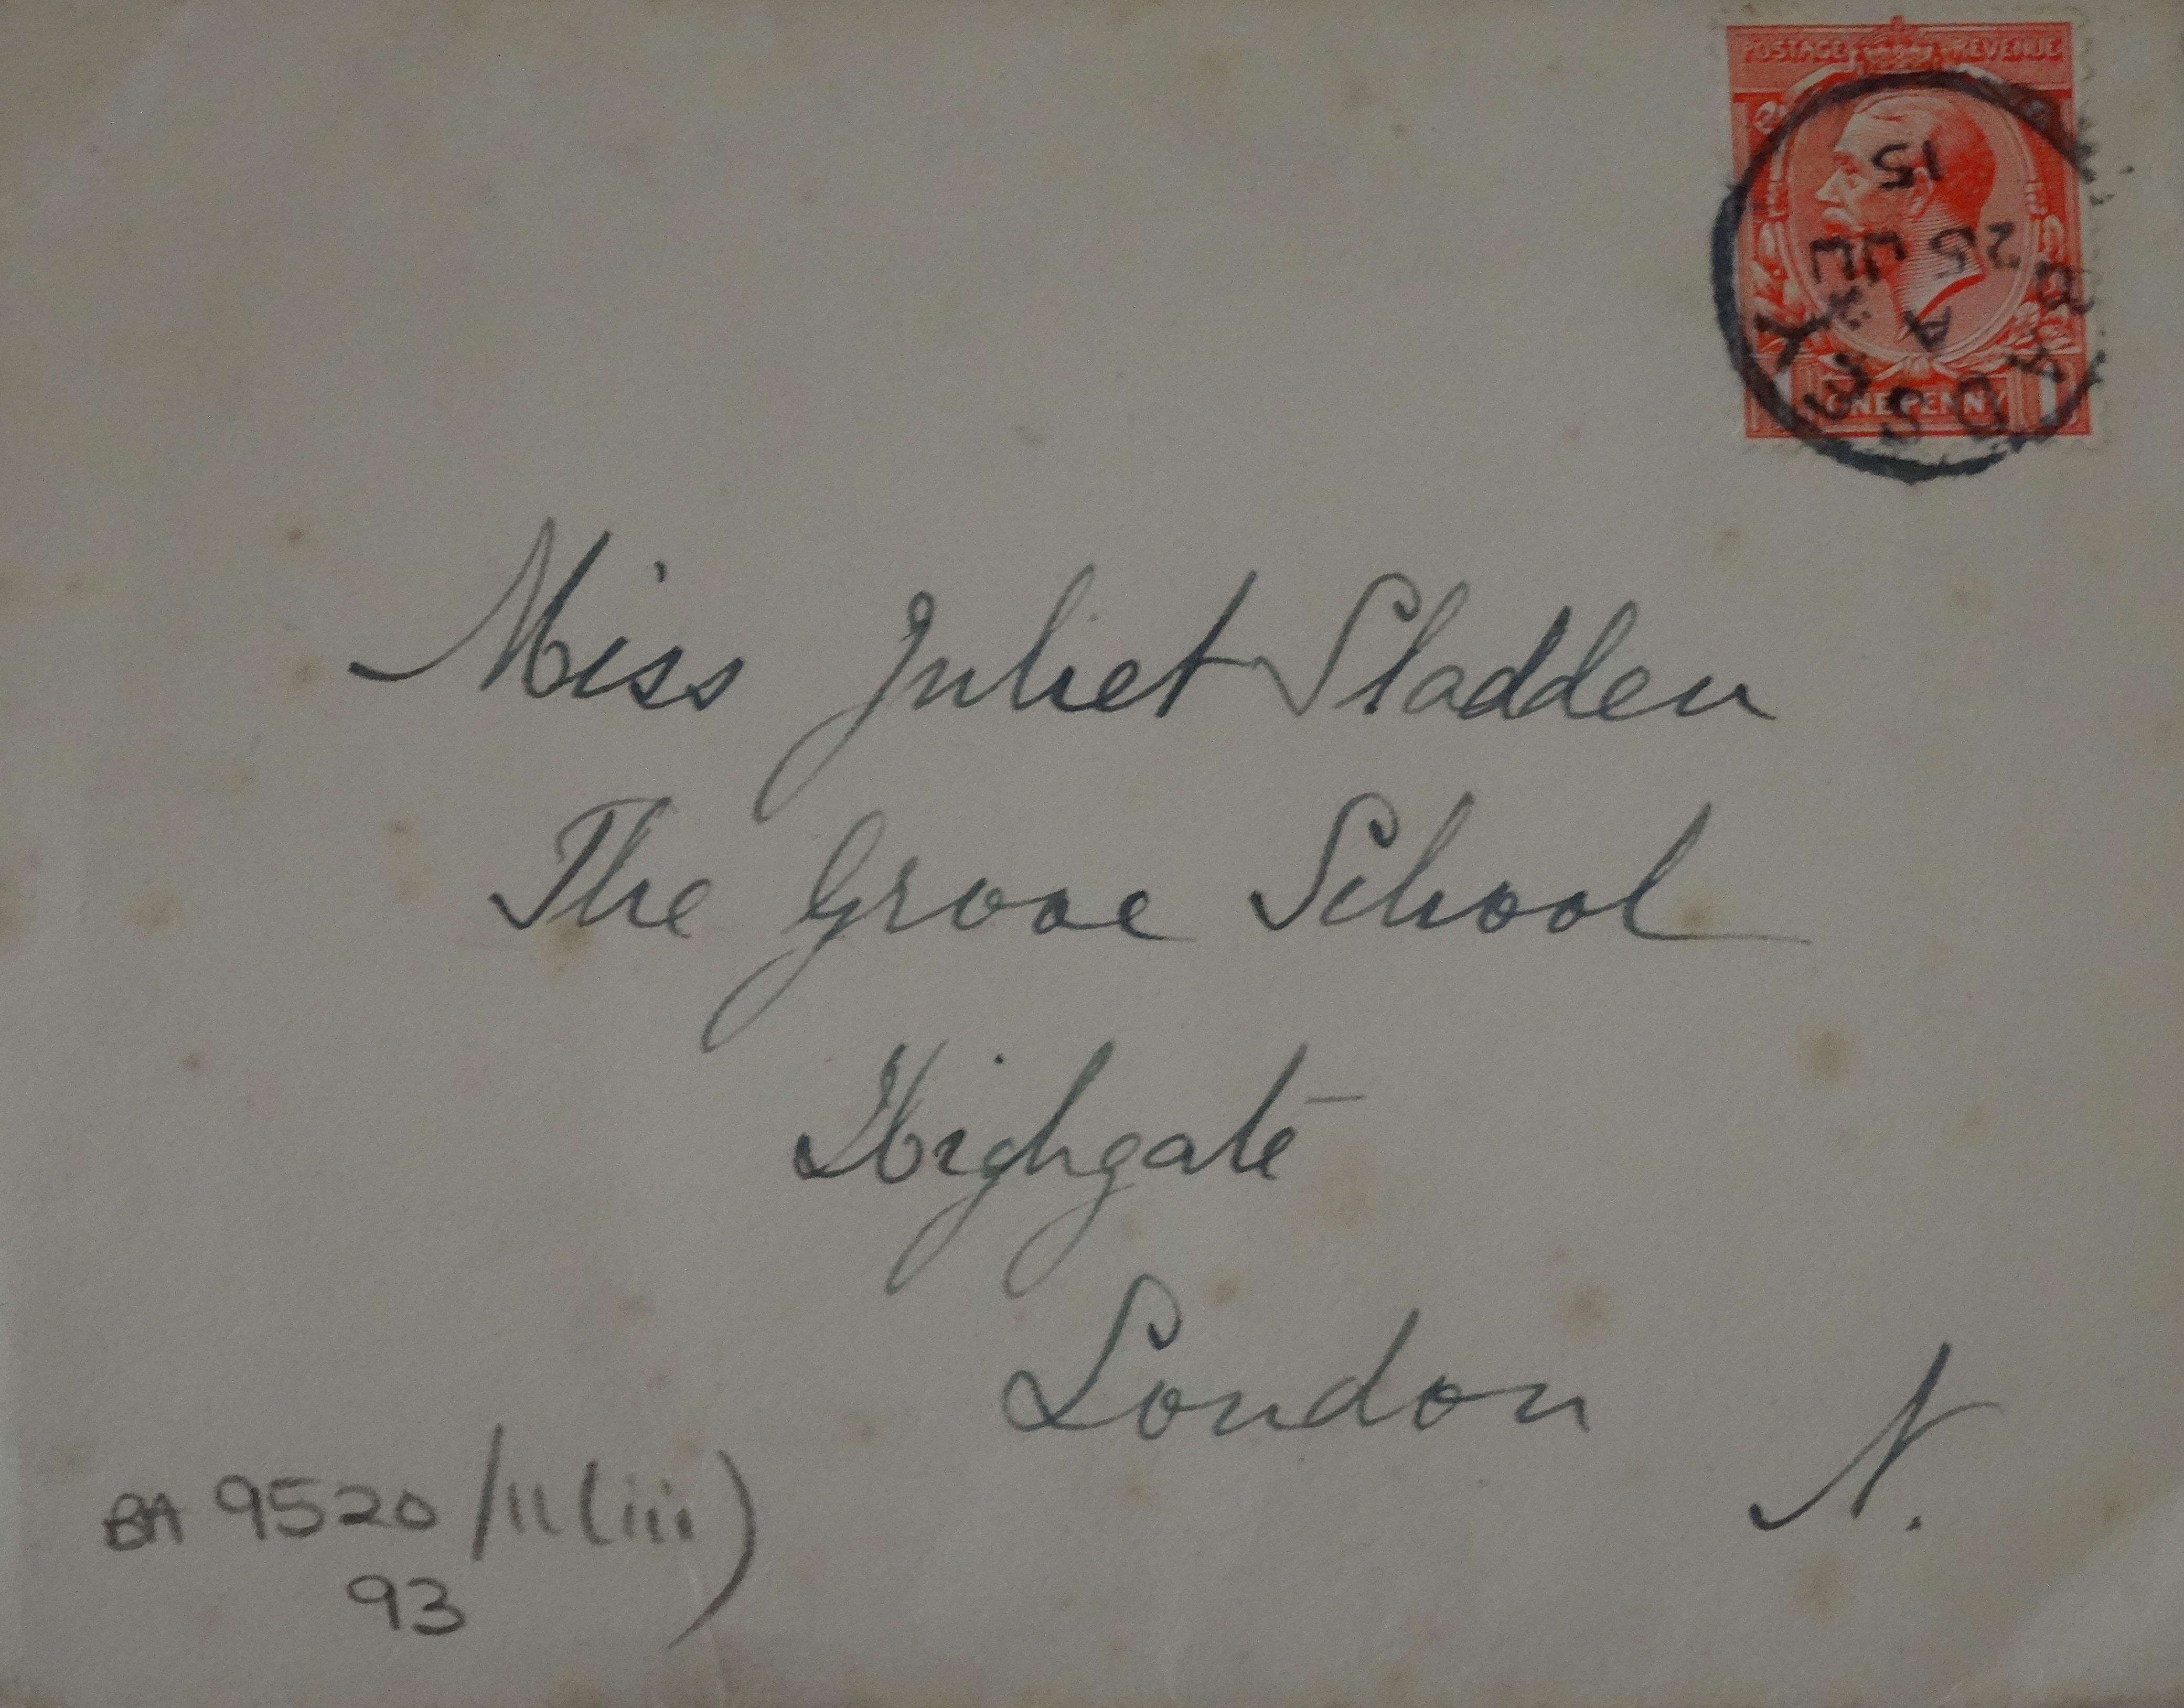 POSTAGE REVENUE
BADSEY
A
25 JL
15
ONE PENNY
Miss Juliet Sladden
The Grove School
Highgate
London
N.
BA 9520/11(iii)
93